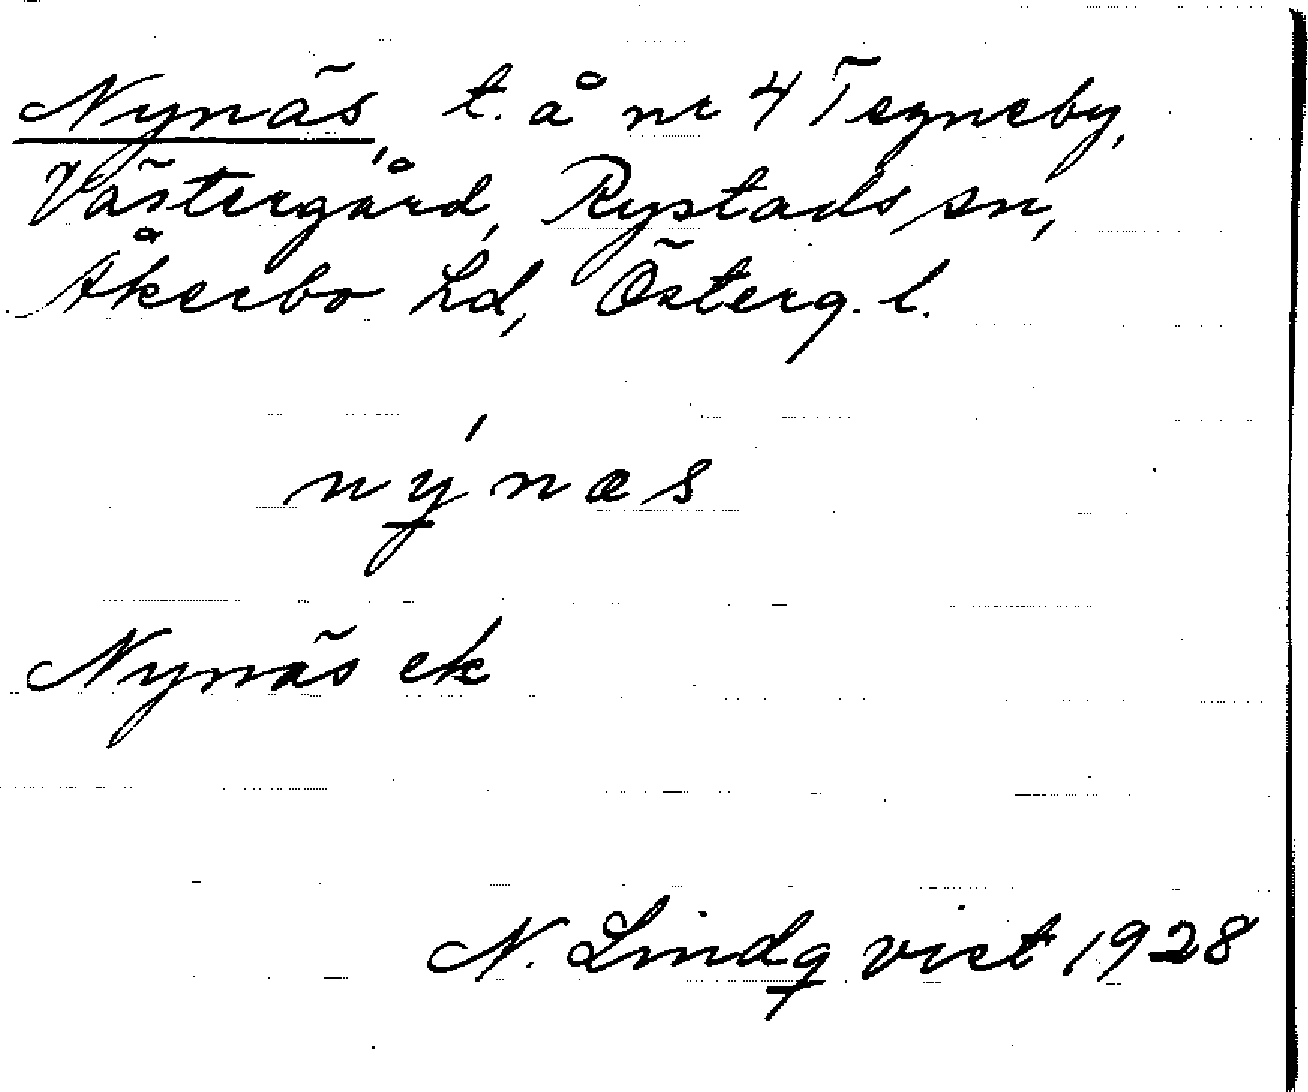 Nynäs, t. å nr 4 Tegneby,
Västergård, Rystads sn,
Åkerbo hd, Österg. l.
nýnæs
Nynäs ek
N. Lindqvist 1928